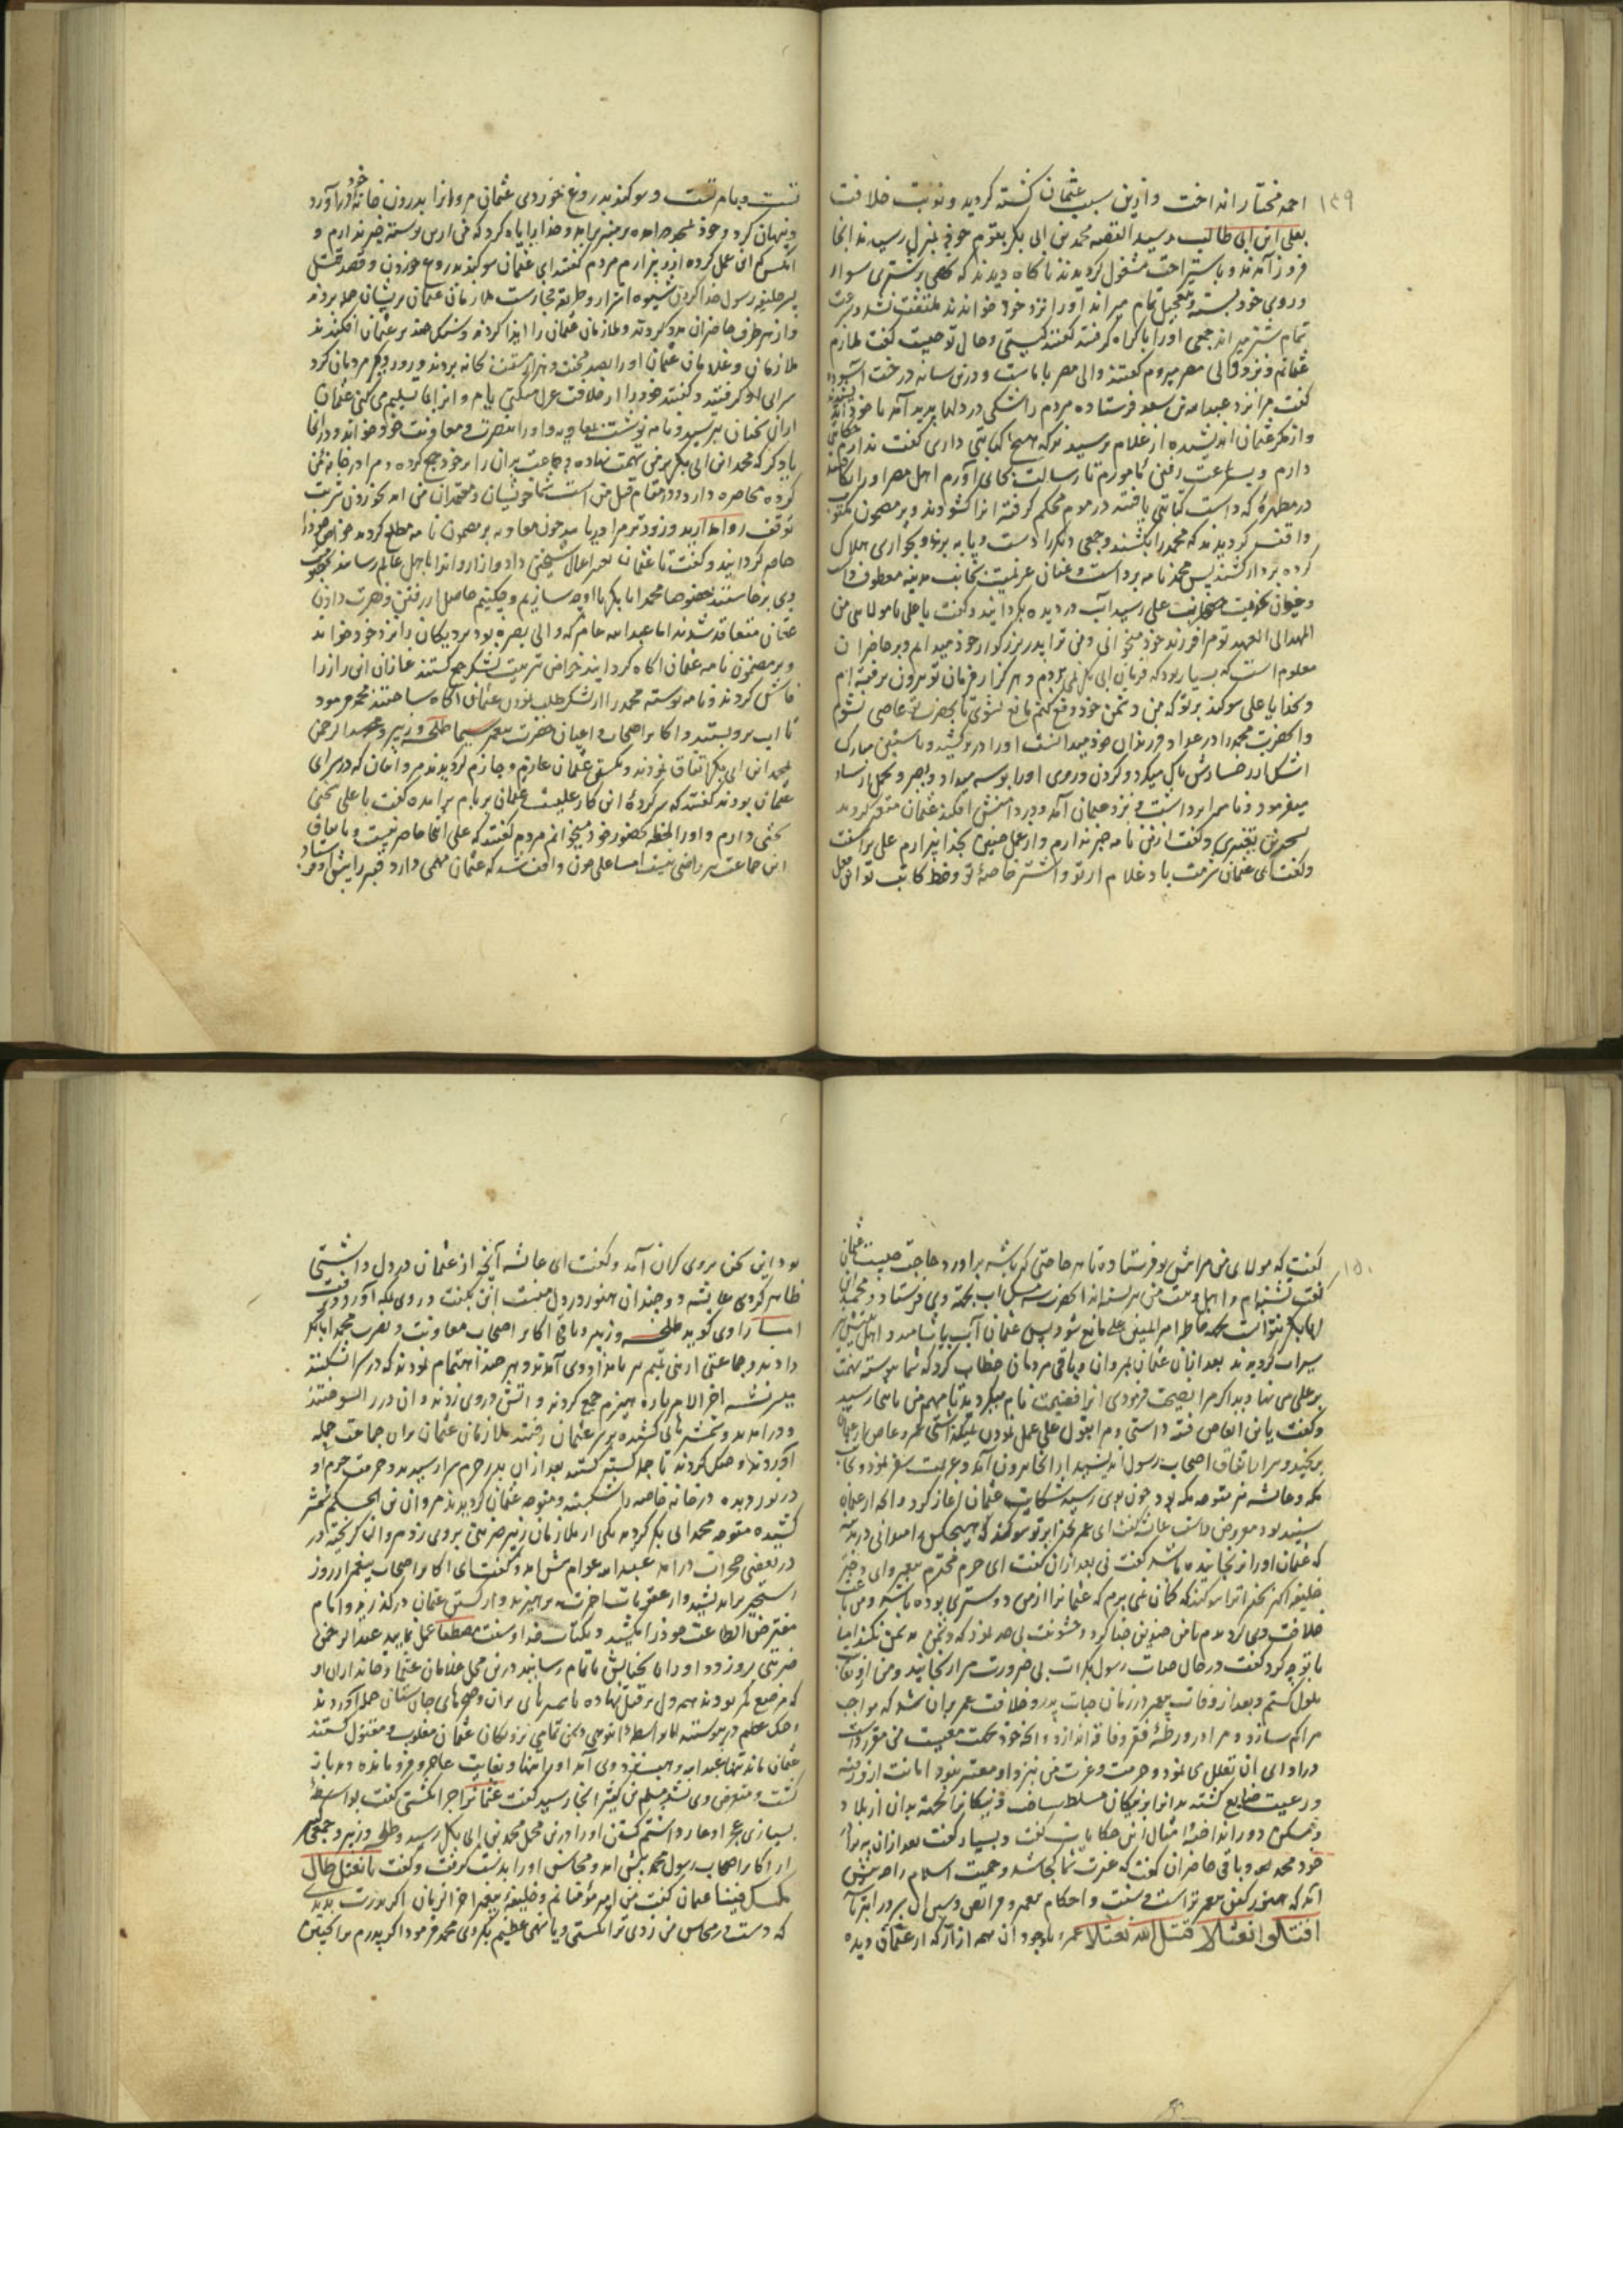 ۱۴۹
احمد مختار انداخت و ازین سبب عثمان کشته گردید و نوبت خلافت
بعلی ابن ابی طالب رسید القصه محمد بن ابی بکر بقوم خود منزل رسیدند انجا
فرود آمدند و باستراحت مشغول گردیدند ناکاه دیدند که شخصی بر شتری سوار
و روی خود بسته و بتعجیل تمام میراند او را نزد خود خواندند ملتفت نشد و سرعت
تمام شتر میراند جمعی او را باکراه گرفتند گفتند کیستی و حال تو چیست گفت ملازم
عثمانم و نزد والی مصر میروم گفتند والی مصر با ماست و درین سایه درخت آسوده
گفت مرا نزد عبدالله بن سعد فرستاده مردم را شکی در دلها پدید آمد با خود
و از مکر عثمان اندیشیده از غلام پرسیدند که هیچ کتابتی داری گفت ندارم
دارم و بسرعت رفتن مامورم تا رسالت بجای آورم اهل مصر او را
در مطهرهٔ که داشت کتابتی یافتند در موم محکم گرفته انرا کشودند و بر مضمون مکتوب
واقف گردیدند که محمد را بکشند و جمعی دیگر را دست و پا ببرند و بخواری هلاک
کرده بر دار کشند پس محمد نامه برداشت و عنان عزیمت بجانب مدینه معطوف داشت
و چون بخدمت علی رسید آب در دیده بگردانید و گفت یا علی یا مولای من
المهد الی العهد تو مرا فرزند خود میخوانی و من ترا پدر بزرگوار خود میدانم و بر حاضران
معلوم است که بسیار بود که فرمان ابی بکر نمی بردم و هرگز از فرمان تو بیرون نرفته ام
و بخدا یا علی سوگند بر تو که من دشمن خود دفع کنم مانع نشوی تا بحضرت عاصی نشوم
و آنحضرت محمد را در عداد فرزندان خود میدانست او را در بر کشید و باستین مبارک
اشک از رخسارش پاک میکرد و گردن و روی او را بوسه میداد و بصبر و تحمل ارشاد
میفرمود و نامه را برداشت و نزد عثمان آمد و در دامنش افکند عثمان متغیر گردید
گفت ازین نامه خبر ندارم و از عمل چنین بخدا بیزارم علی برآشفت
و گفت ای عثمان شرمت باد غلام از تو و اشتر خاصهٔ تو و خط کاتب تو این عمل
و سوگند بدروغ خوردی عثمان مروانرا بدرون خانه خود درآورد
و پنهان کرد و خود بر منبر برآمد و خدا را یاد کرد که من ازین نوشته خبر ندارم و
انکس که این عمل کرده ازو بیزارم مردم گفتند ای عثمان سوگند بدروغ خوردن و قصد قتل
پسر خلیفه رسول خدا کردن شیوه اشرار و طریقه فجارست ملازمان عثمان بریشان حمله بردند
و از هر طرف حاضران مدد کردند و ملازمان عثمان را ایذا کردند و سنگ چند بر عثمان افکندند
ملازمان و غلامان عثمان او را بصد محنت و هزار مشقت بخانه بردند و روز دیگر مردمان گرد
سرای او گرفتند و گفتند خود را از خلافت عزل میکنی یا مروانرا بما تسلیم می کنی عثمان
ازین سخنان بترسید و نامه نوشت بمعاویه و او را بنصرت و معاونت خود خواند و در انجا
یاد کرد که محمد ابن ابی بکر بر من تهمت نهاده و جماعت را بر خود جمع کرده و مرا در خانه من
کرده محاصره دارد و در مقام قتل من است شما خویشان و معتمدان من اید بخوردن شربت
توقف روا مدارید و زودتر مرا دریابید چون معاویه بر مضمون نامه مطلع گردید خواص خود را
حاضر گردانید و گفت تا عثمان
وی برخاستند
عثمان متقاعد شدند اما عبدالله عامر که والی بصره بود نزدیکان را نزد خود خواند
و بر مضمون نامه عثمان آگاه گردانید عازان این راز را
فاش کردند و نامه نوشته محمد را از لشکر طلب نمودن عثمان آگاه ساختند محمد فرمود
تا آب برو بستند و اکابر اصحاب و اعیان حضرت پیغمبر سیما طلحه و زبیر و عبدالرحمن
بمحمد ابن ابی بکر اتفاق نمودند و بکشتن عثمان عازم و جازم گردیدند مروانیان که در سرای
عثمان بودند گفتند که سرکردهٔ این کار علیست عثمان بر بام برآمده گفت با علی سخنی
دارم و او را لحظه بحضور خود میخوانم مردم گفتند که علی اینجا حاضر نیست و باتفاق
این جماعت هم راضی نیست اما علی چون واقف شد که عثمان مهمی دارد قنبر را پیش او
۱۵۰
گفت که مولای من مرا پیش تو فرستاده تا هر حاجتی که باشد برآورد حاجت چیست عثمان
گفت تشنه ام و اهل بیت من تشنه اند آنحضرت مشک آب بجهة وی فرستاد و محمد ابن
ابابکر نتوانست بجهه خاطر امیرالمومنین علی مانع شود پس عثمان آب بیاشامید و اهل بیتش
سیراب گردیدند بعد ازان عثمان بمروان و باقی مردمان خطاب کرد که شما پیوسته تهمت
بر علی می نهادید اگر مرا نصیحت فرمودی انرا فضیحت نام میکردید تا مهم من باینجا رسید
و گفت یا ابن العاص فتنه داشتی و مرا بقول علی عمل نمودن نمیگذاشتی عمرو عاص از عثمان
برنجید و سر باتفاق اصحاب رسول اندیشید از انجا بیرون آمد و عزیمت سفر نمود بجانب
مکه و عایشه نیز متوجه مکه بود چون بوی رسید شکایت عثمان آغاز کرد و آنچه از عثمان
شنیده بود معروض داشت عایشه گفت ای عمر بخدا بر تو سوگند که هیچکس را میدانی در مدینه
که عثمان او را نرنجانیده باشد گفت نی بعد ازان گفت ای حرم محترم پیغمبر و ای دختر
خلیفه اکبر بخدا ترا سوگند که گمان نمی برم که عثمانرا از من دوستری بوده باشد و من باعث
خلافت وی گردیدم با من چنین جفا کرد و خشونت بی حد نمود که دشمن به دشمن نکند اما
با تو چه کرد گفت در حال حیات رسول بکرات بی ضرورت مرا رنجانید و من از وی بغایت
ملول گشتم و بعد از وفات پیغمبر در زمان حیات پدر و خلافت عمر بران شد که مواجب
مرا کم سازد و مرا در ورطهٔ فقر و فاقه اندازد و آنچه خود بجهت معیشت من مقرر داشت
در ادای آن تعلل می نمود و حرمت و عزت من نیز داو معتبر نبود امانت از وی رفته
و رعیت ضایع گشته بدانرا بر نیکان مسلط ساخت و نیکانرا بجهة بدان از بلاد
و مسکن دور انداخته امثال این حکایات گفت و بسیار گفت بعد ازان به برادر
خود محمد و باقی حاضران گفت که غیرت شما کجا شد و حمیت اسلام را چه پیش
آمد که هنوز کفن پیغمبر تر است و سنت و احکام پیغمبر و فرائض
اقتلوا نعثلا قتل الله نعثلا عمرو باوجود آن همه آزار که از عثمان دیده
بود این سخن بروی گران آمد و گفت ای عایشه آنچه از عثمان در دل داشتی
ظاهر کردی عایشه دو چندان هنوز در دل منست این بگفت و روی بمکه آورد و رفت
اما راوی گوید طلحه و زبیر و باقی اکابر اصحاب معاونت و نصرت محمد ابابکر
دادند و جماعتی از بنی تیم هر بامداد وی آمدند و هر چند اهتمام نمودند که در سرا شکنند
میسر نشد آخر الامر پاره هیزم جمع کردند و آتش در وی زدند و آن در را سوختند
و درآمدند و شمشیرهای کشیده بر سر عثمان رفتند ملازمان عثمان بران جماعت حمله
آوردند و جنگ کردند تا جمله کشته گشتند بعد ازان بدر حرم سرا رسیدند و حرمت حرم او
در نوردیده در خانه خاصه را شکسته و متوجه عثمان گردیدند مروان بن الحکم شمشیر
کشیده متوجه محمد ابی بکر گردید یکی از ملازمان زبیر ضربتی بروی زد مروان گریخته در
در بعضی حجرات درآمد عبدالله عوام پیش آمد و گفت ای اکابر اصحاب پیغمبر از روز
رستخیز براندیشید و از عقوبات آخرت بپرهیزید و از کشتن عثمان درگذرید و امام
مفترض الطاعت خود را مکشید و بکتاب خدا و سنت مصطفا عمل نمایید عبدالرحمن
ضربتی بروزد و او را با سخنانش ناتمام رسانید درین محل غلامان عثمان و جانداران او
که مرصع کمر بودند همه دل بر قتل نهاده با شمشیرهای بران و حربهای جان ستان حمله آوردند
جنگ عظیم در پیوستند اما بواسطهٔ انبوهی دشمن تمامی نزدیکان عثمان مغلوب و مقتول گشتند
عثمان ماند تنها عبدالله وهب نزد وی آمد او را تنها و بغایت عاجز و فرومانده دید باز
گشت و متعرض وی نشد مسلم بن کثیر انجا رسید گفت عثمانرا چرا نکشتی گفت بواسطهٔ
بسیاری عجز او عار داشتم کشتن او را درین محل محمد بن ابی بکر رسید و طلحه و زبیر و جمعی
از اکابر اصحاب رسول محمد پیش آمد و محاسن او را بدست گرفت و گفت یا نعثل طال
مکسک فینا عثمان گفت من امیر مؤمنانم و خلیفهٔ پیغمبر آخر الزمان اگر پدرت بدیدی
که دست در محاسن من زدی ترا بکشتی و یا نهی عظیم بکردی محمد فرمود اگر پدرم مرا چنین